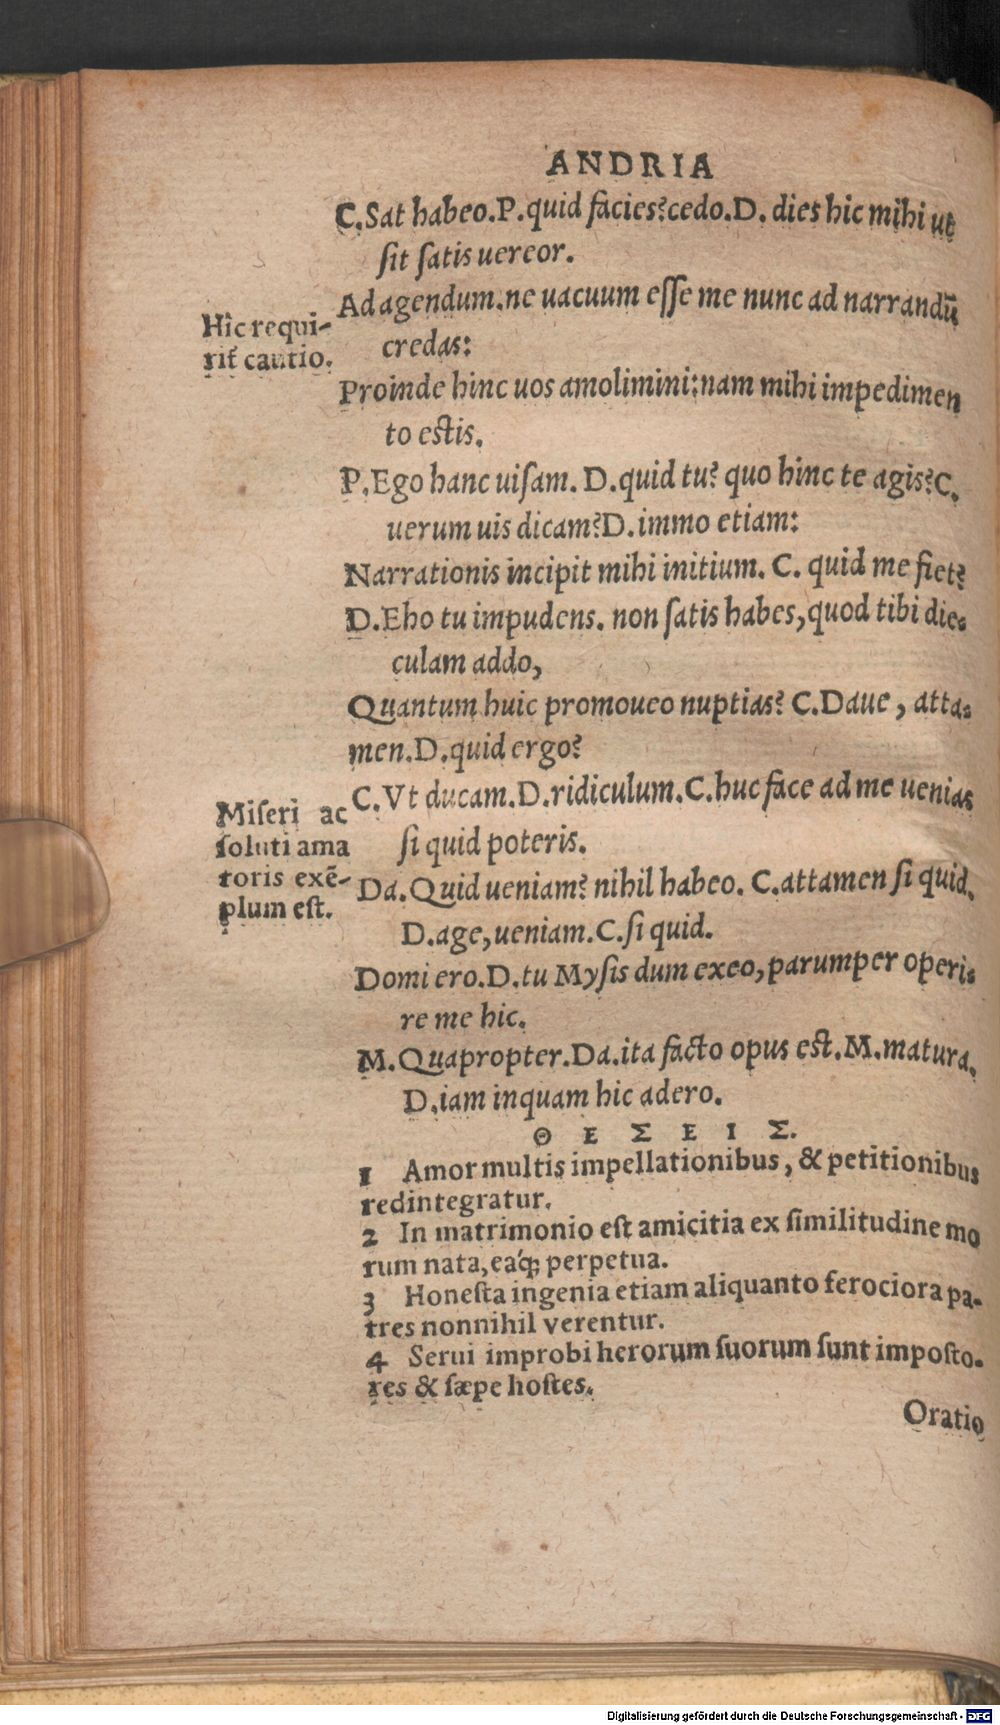 ANDRIA
C.Sat habeo.P.quid facies?cedo.D. dies hic mihi ut
sit satis uereor.
Ad agendum.ne uacuum esse me nunc ad narrandū
credas:
Hîc requi-
rit cautio.
Proinde hinc uos amolimini:nam mihi impedimen
to estis.
P.Ego hanc uisam. D.quid tu? quo hinc te agis?C.
uerum uis dicam?D.immo etiam:
Narrationis incipit mihi initium. C. quid me fiet?
D.Eho tu impudens. non satis habes,quod tibi die-
culam addo,
Quantum huic promoueo nuptias? C.Daue, atta-
men.D.quid ergo?
C.Vt ducam.D.ridiculum.C.huc face ad me uenias
si quid poteris.
Miseri ac
soluti ama
toris exē-
plum est.
Da.Quid ueniam? nihil habeo. C.attamen si quid.
D.age,ueniam.C.si quid.
Domi ero.D.tu Mysis dum exeo,parumper operi-
re me hic.
M.Quapropter.Da.ita facto opus est.M.matura.
D.iam inquam hic adero.
Θ Ε Σ Ε Ι Σ.
1 Amor multis impellationibus, & petitionibus
redintegratur.
2 In matrimonio est amicitia ex similitudine mo
rum nata,eáq; perpetua.
3 Honesta ingenia etiam aliquanto ferociora pa-
tres nonnihil verentur.
4 Serui improbi herorum suorum sunt imposto-
res & sæpe hostes.
Oratio
Digitalisierung gefördert durch die Deutsche Forschungsgemeinschaft - DFG